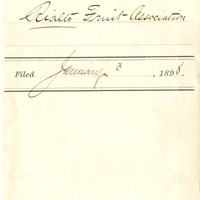 Rialto Fruit Association
Filed January 3, 1898.